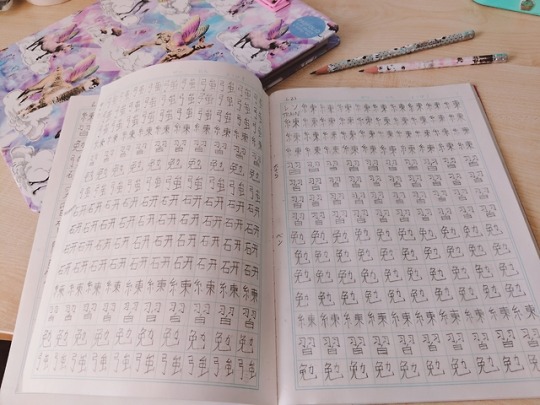 強強強強強強強強
強強強強強強強強
強強強強強強強強
練練練練練練練練
習習習習習習習習
勉勉勉勉勉勉勉勉
強強強強強強強強
研研研研研研研研
研研研研研研研研
研研研研研研研研
研研研研研研研研
練練練練練練練練
習習習習習習習習
勉勉勉勉勉勉勉勉
強強強強強強強強
練練練練練練練練
練練練練練練練練
練練練練練練練練
練練練練練練練練
習習習習習習習習
習習習習習習習習
習習習習習習習習
習習習習習習習習
勉勉勉勉勉勉勉勉
勉勉勉勉勉勉勉勉
勉勉勉勉勉勉勉勉
勉勉勉勉勉勉勉勉
練練練練練練練練
習習習習習習習習
勉勉勉勉勉勉勉勉